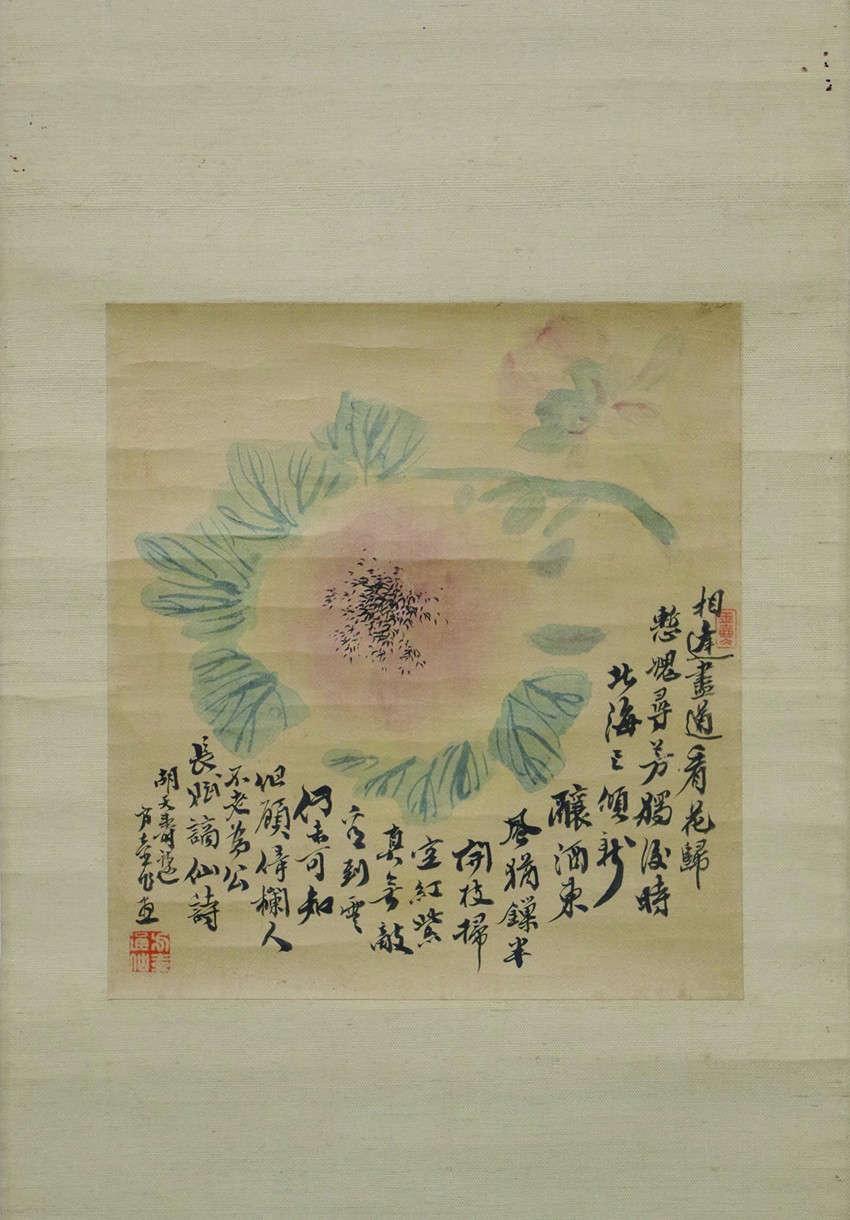 相逢盡道看花歸
慙愧尋芳獨後時
北海已傾新
釀酒東
風猶鏁半
開枝掃
空紅紫
真無敵
看到雲
仍未可知
但願倚欄人
不老為公
長賦謫仙詩
胡天
方壺作畫